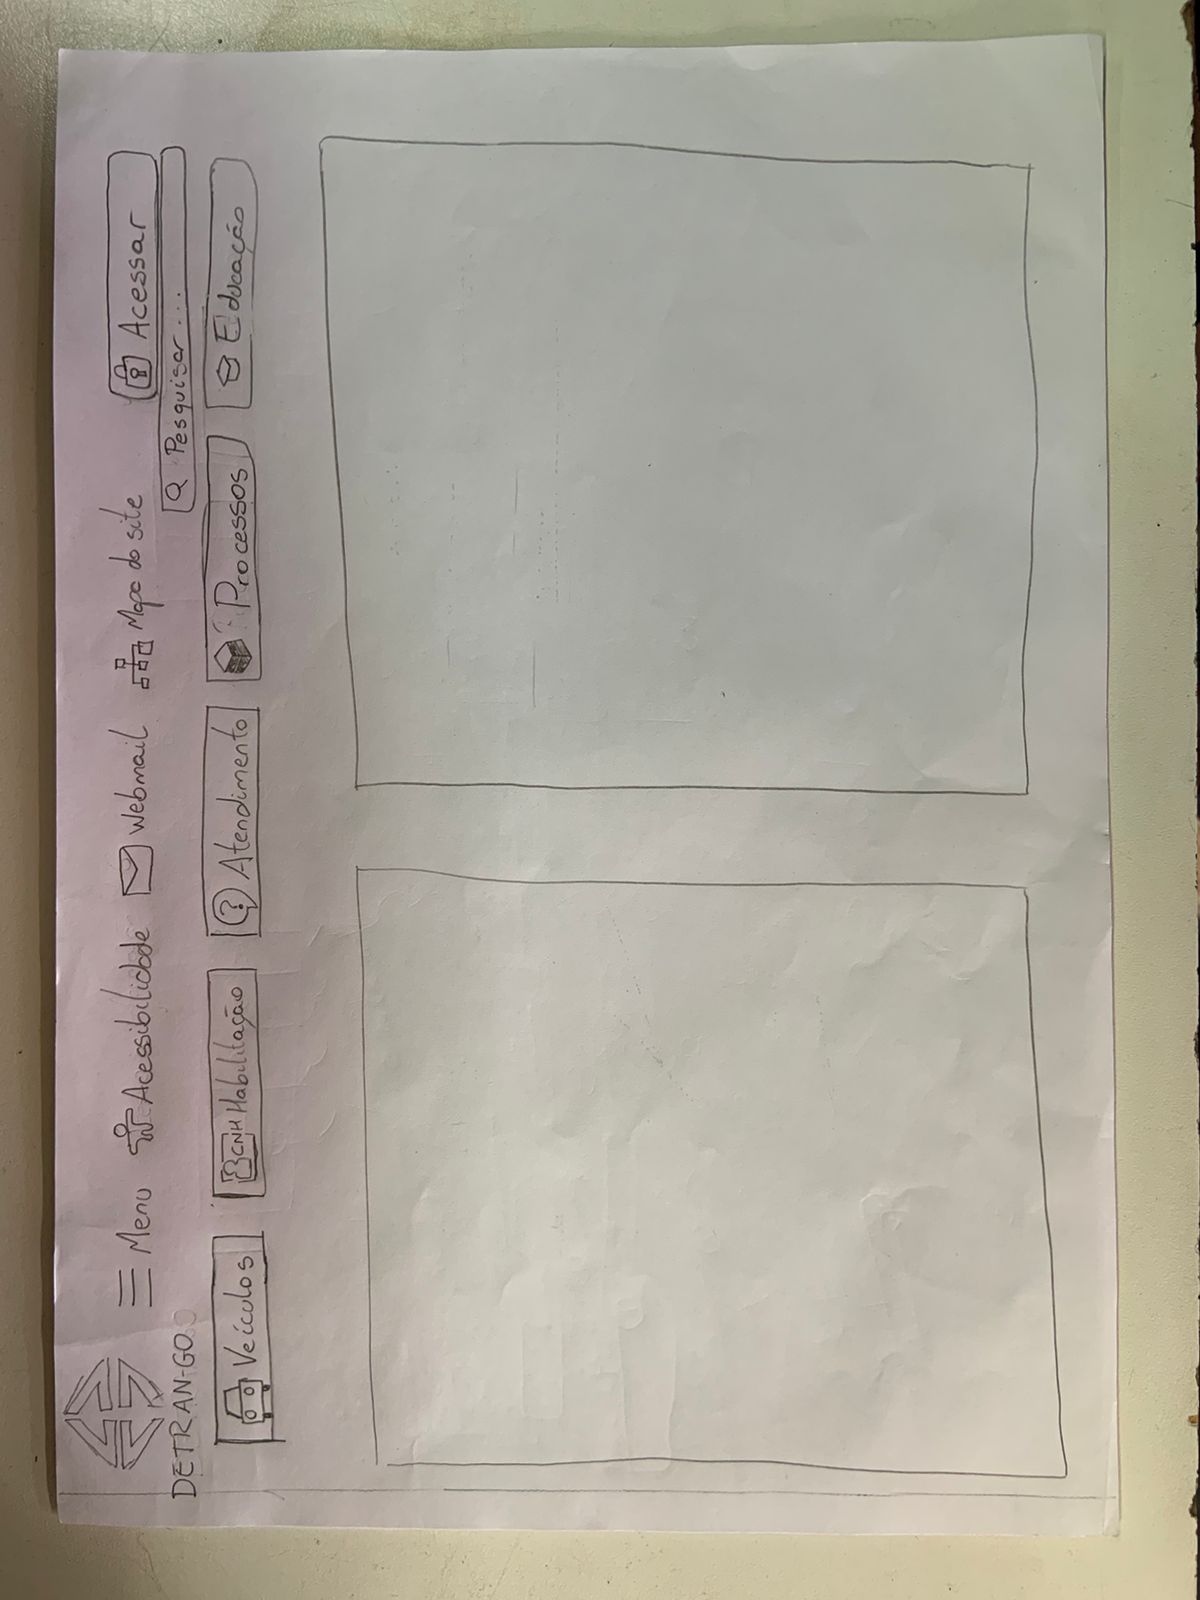 DETRAN-GO
Menu Acessibilidade Webmail Mapa do site Acessar
Pesquisar...
Veículos CNH Habilitação ? Atendimento Processos Educação